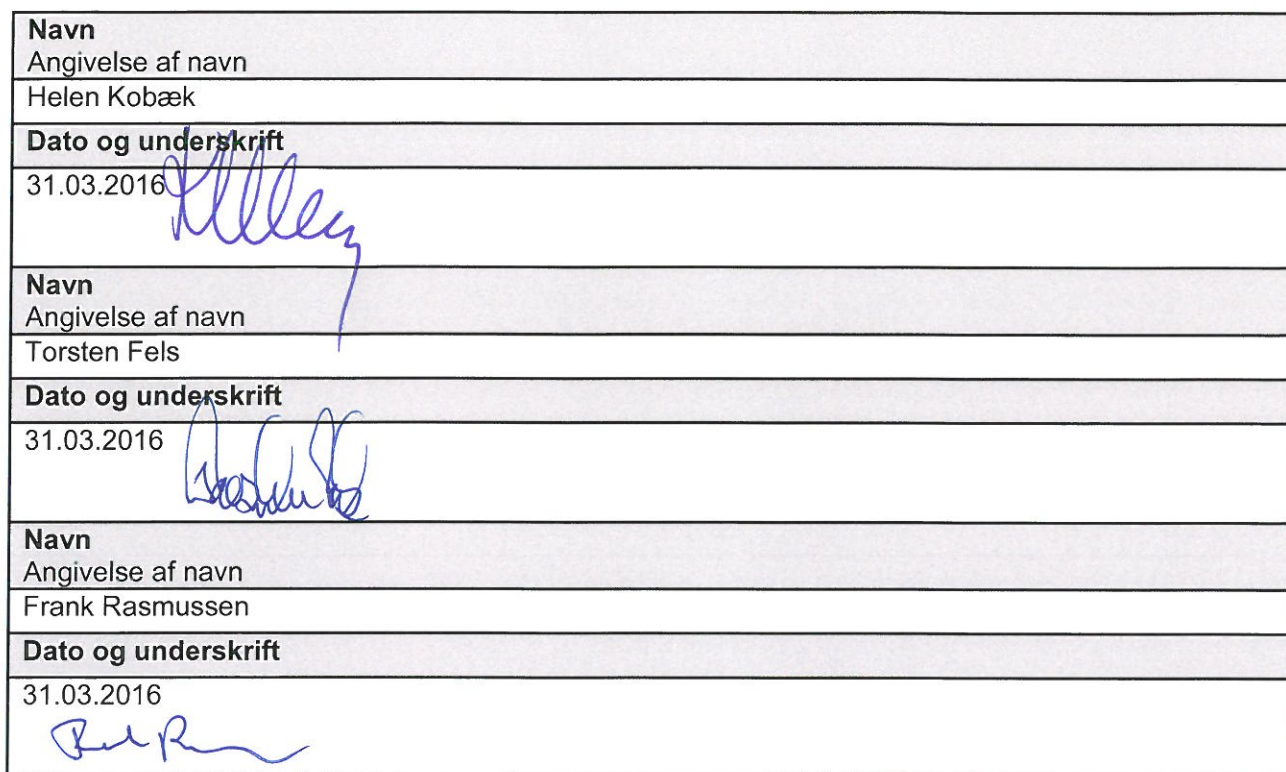 Navn
Angivelse af navn
Helen Kobæk
Dato og underskrift
31.03.2016
Navn
Angivelse af navn
Torsten Fels
Dato og underskrift
31.03.2016
Navn
Angivelse af navn
Frank Rasmussen
Dato og underskrift
31.03.2016